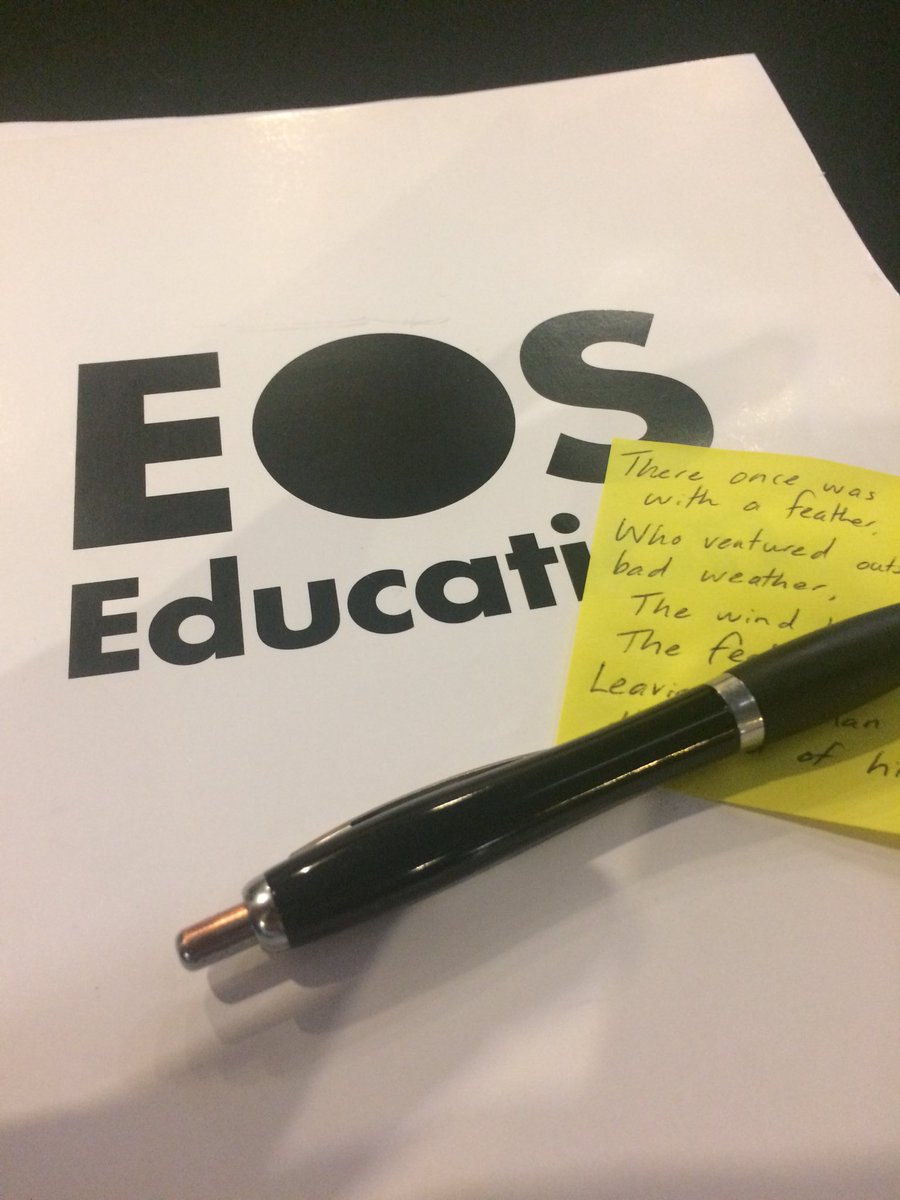 EOS
Educati
There once was
with a feather,
Who ventured outs
bad weather,
The wind
The fe
Leavi
of hi